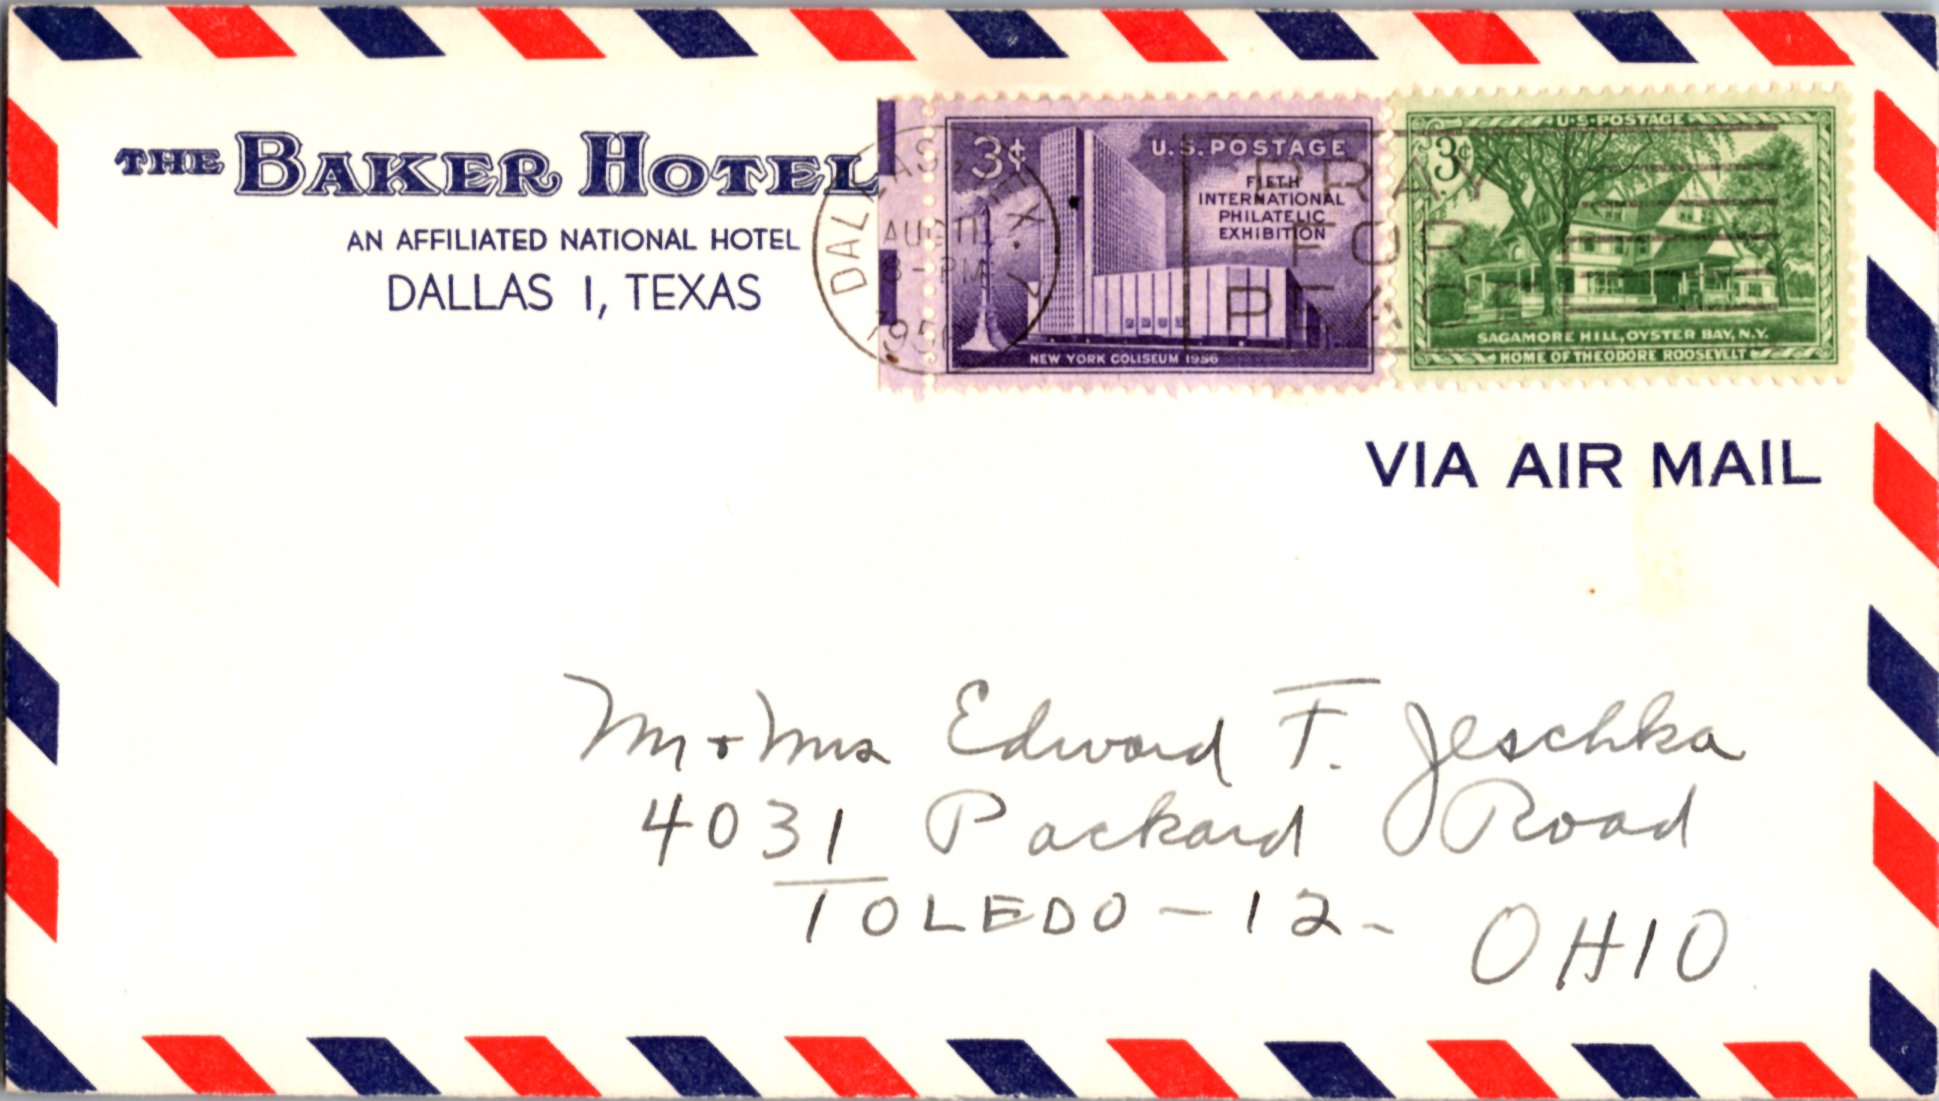 THE BAKER HOTEL
AN AFFILIATED NATIONAL HOTEL
DALLAS 1, TEXAS
DALLAS, TEX.
AUG 11
8-PM
195
PRAY
FOR
PEACE
3¢
U.S. POSTAGE
FIFTH
INTERNATIONAL
PHILATELIC
EXHIBITION
NEW YORK COLISEUM 1956
U·S·POSTAGE
3¢
SAGAMORE HILL, OYSTER BAY, N.Y.
HOME OF THEODORE ROOSEVELT
VIA AIR MAIL
Mr + Mrs Edward F. Jeschka
4031 Packard Road
TOLEDO - 12 - OHIO